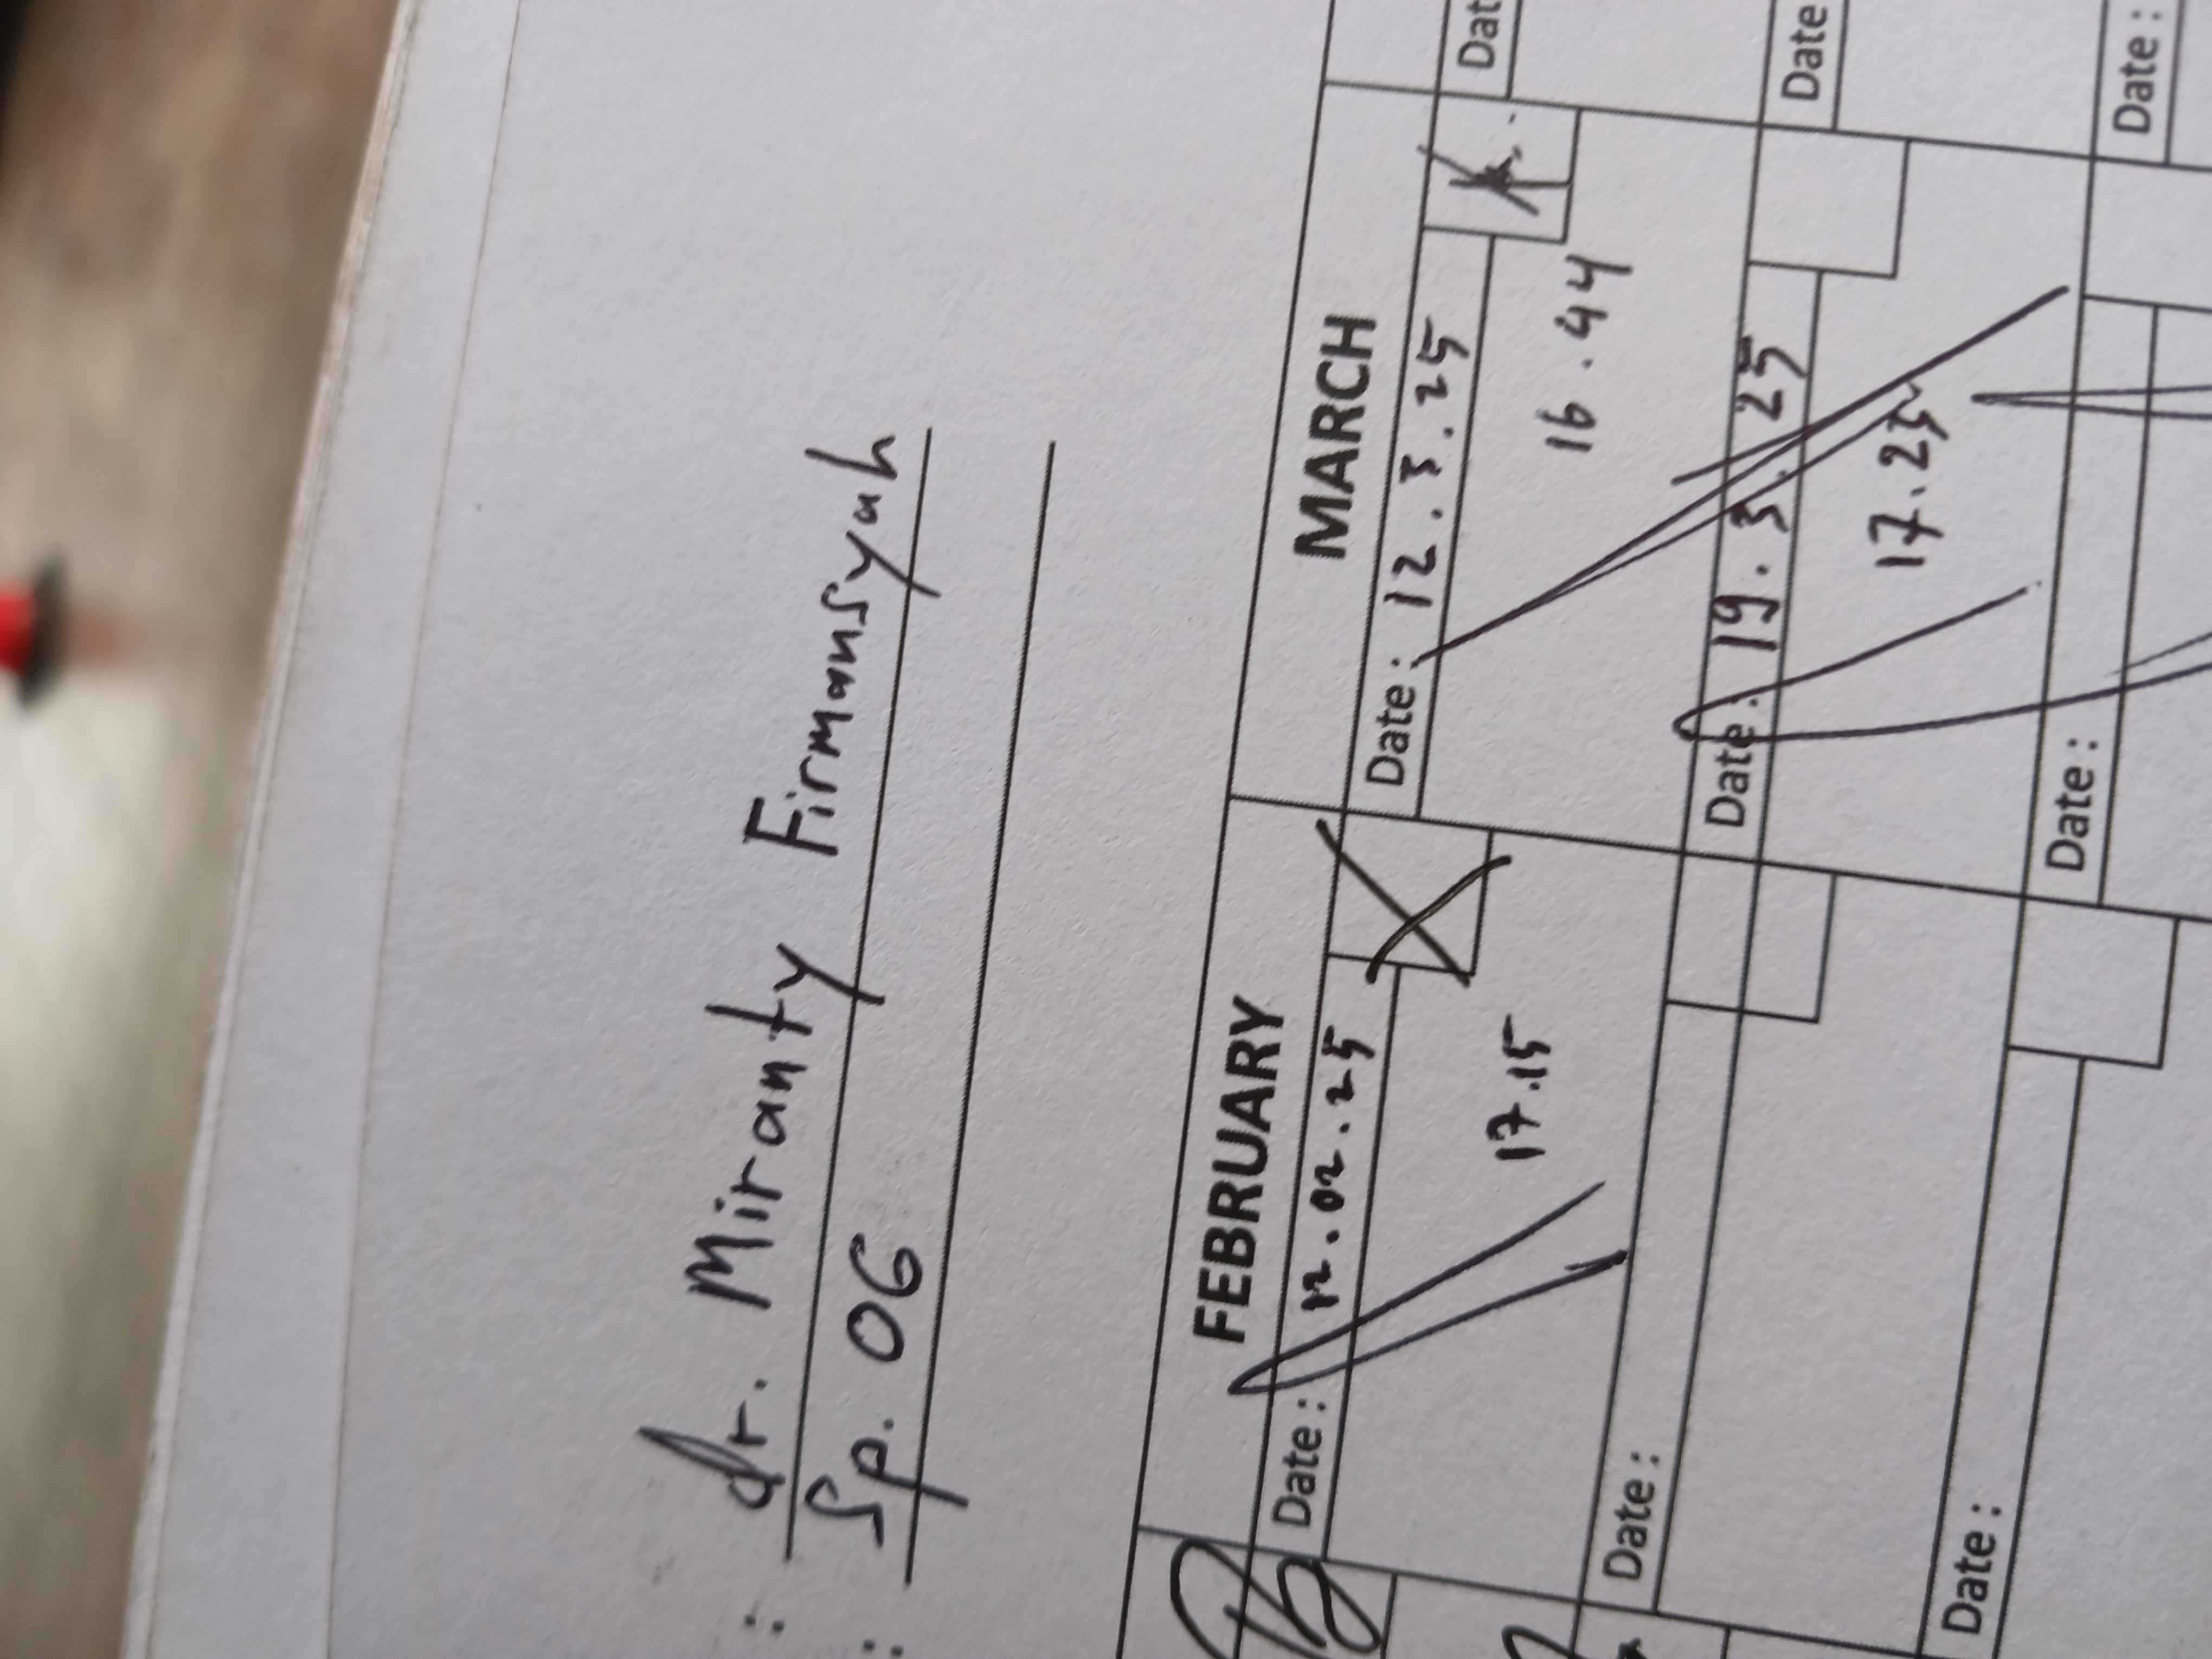 : dr. Miranty Firmansyah
: Sp. OG
FEBRUARY MARCH
Date : 12.02.25 Date : 12.3.25 Dat
17.15 16.44
Date : Date : 19.3.25 Date
17.25
Date : Date : Date :